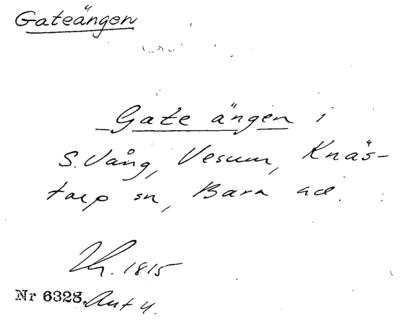 Gateängen
Gate ängen i
S. Vång, Vesum, Knäs-
torp sn, Bara hd.
Lh. 1815
Nr 6328. Aut 4.